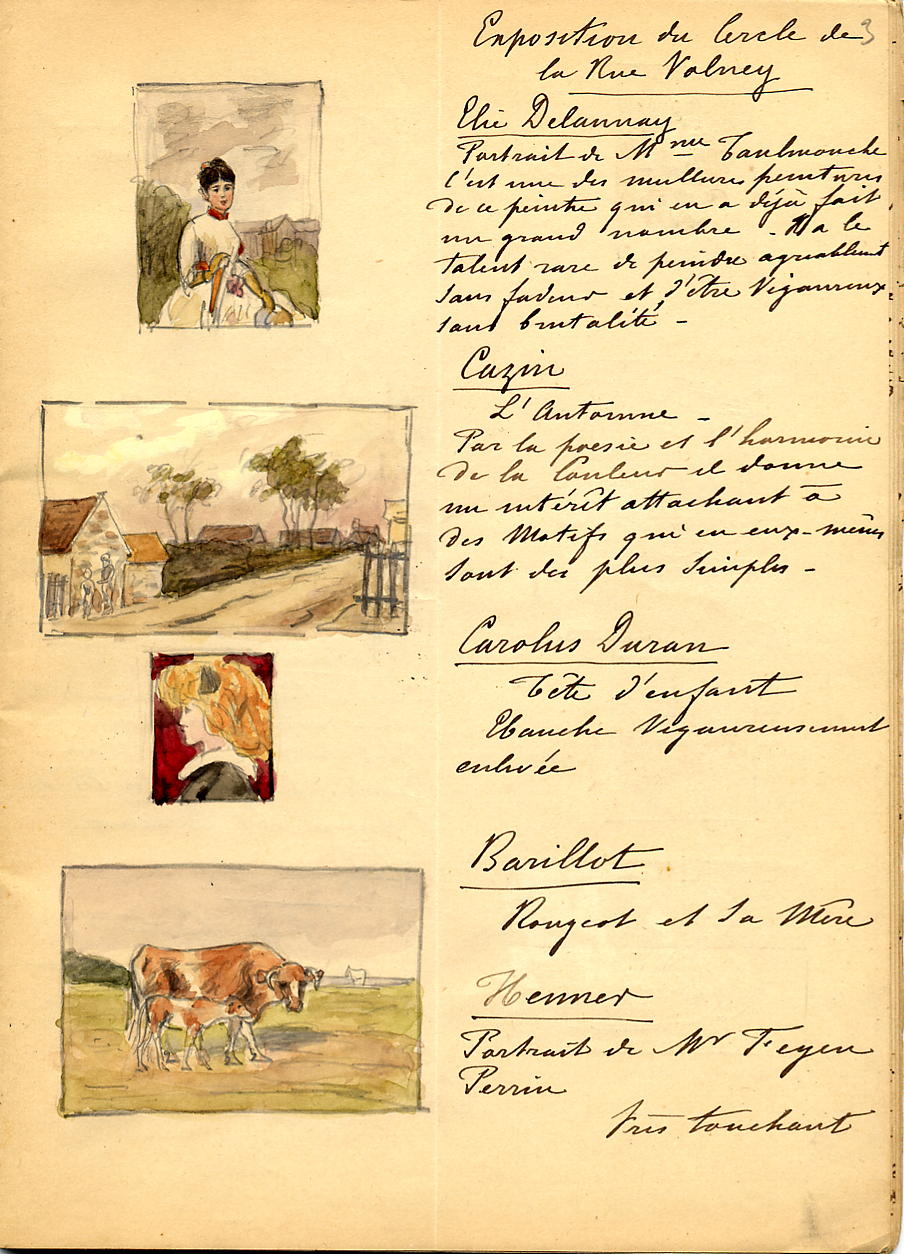 3
Exposition du Cercle de
la Rue Volney
Elie Delaunay
Portrait de Mme Toulmouche
C'est une des meilleures peintures
de ce peintre qui en a déjà fait
un grand nombre - Il a le
talent rare de peindre agréablement
sans fadeur et d'être Vigoureux
sans brutalité -
Cazin
L'Automne -
Par la poesie et l'harmonie
de la Couleur il donne
un intérêt attachant à
des Motifs qui en eux-mêmes
sont des plus simples -
Carolus Duran
Tête d'enfant
Ebauche Vigoureusement
enlevée
Barillot
Rougeot et sa Mère
Henner
Portrait de Mr Feyen
Perrin
Très touchant